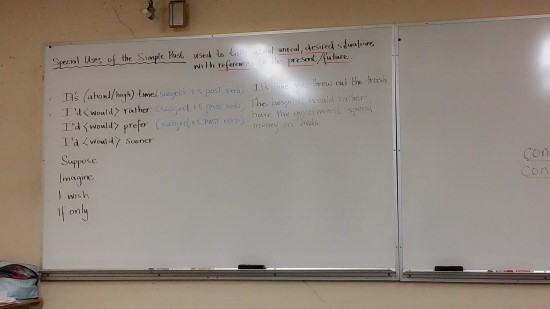 Special Uses of the Simple Past used to talk about unreal, desired situations
with reference to the present/future.
It's (about/high) time (subject + s past verb) It's time you threw out the trash
I'd <would> rather (subject + s past verb) The hospital would rather
I'd <would> prefer (subject + s past verb) have the government spend
I'd <would> sooner money on
Suppose
Imagine
I wish
If only
con
con